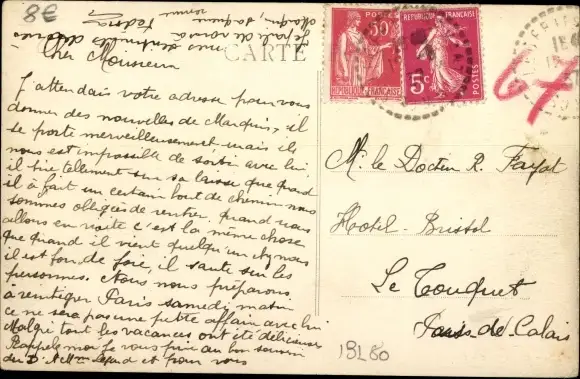 8€
CARTE
Cher Monsieur
J'attendais votre adresse pour vous
donner des nouvelles de Marquis, il
se porte merveilleusement, mais ils
nous est impossible de sortir avec lui,
il tire tellement sur sa laisse que quand
il a fait un certain bout de chemin nous
sommes obligées de rentrer, quand nous
allons en visite c'est la même chose
que quand il vient quelqu'un chez nous
il est fou de joie, il saute sur les
personnes. Nous nous préparons
à réntégrer Paris samedi matin
ce ne sera pas une petite affaire avec lui
Malgré tout les vacances ont été délicieuses
Rappelez moi je vous prie au bon souvenir
du Dr et Mme et pour vous
50
POSTES
REPUBLIQUE FRANÇAISE
REPUBLIQUE FRANÇAISE
5c
POSTES
67
M. le Docteur R. Fayot
Hotel-Bristol
Le Touquet
Pas-de-Calais
13L80